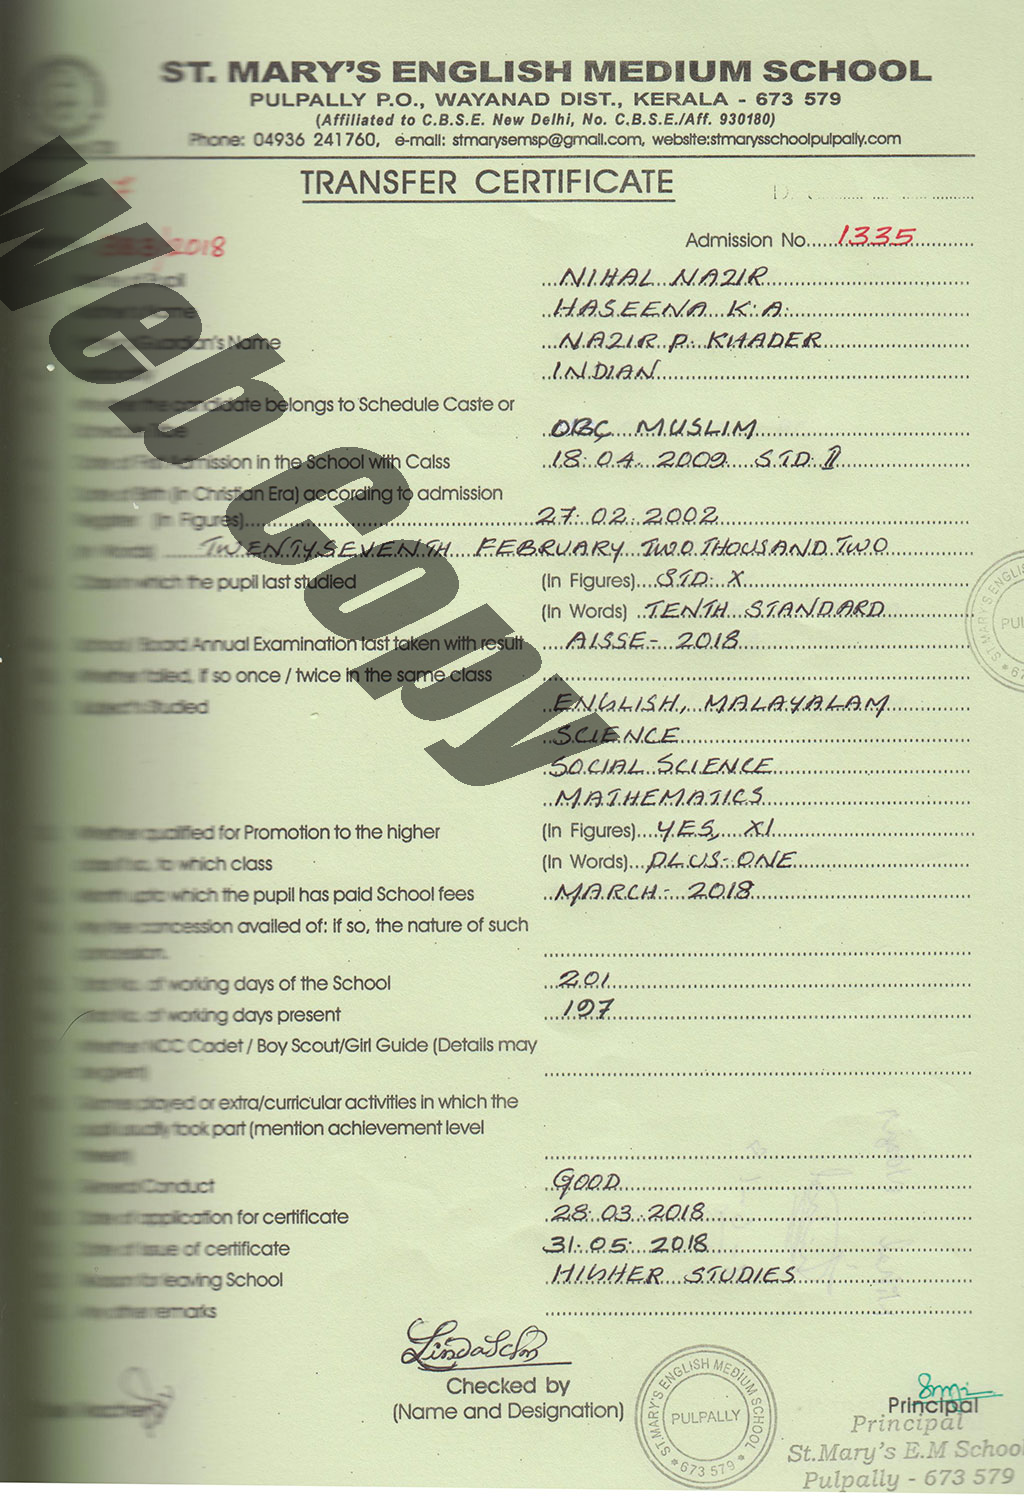 ST. MARY'S ENGLISH MEDIUM SCHOOL
PULPALLY P.O., WAYANAD DIST., KERALA - 673 579
(Affiliated to C.B.S.E. New Delhi, No. C.B.S.E./Aff. 930180)
Phone: 04936 241760, e-mail: stmarysemsp@gmail.com, website:stmarysschoolpulpally.com
TRANSFER CERTIFICATE
/2018
Admission No. 1335
Pupil NIHAL NAZIR
HASEENA K.A.
Guardian's Name NAZIR P. KHADER
INDIAN
the candidate belongs to Schedule Caste or
OBC MUSLIM
Admission in the School with Calss 18.04.2009 STD II
Birth (in Christian Era) according to admission
Register (In Figures) 27.02.2002
(In Words) TWENTYSEVENTH FEBRUARY TWO THOUSAND TWO
which the pupil last studied (In Figures) STD. X
(In Words) TENTH STANDARD
Board Annual Examination last taken with result AISSE - 2018
Whether failed, if so once / twice in the same class
Studied ENGLISH, MALAYALAM
SCIENCE
SOCIAL SCIENCE
MATHEMATICS
Whether qualified for Promotion to the higher (In Figures) YES, XI
to which class (In Words) PLUS-ONE
which the pupil has paid School fees MARCH - 2018
concession availed of: if so, the nature of such
concession.
of working days of the School 201
of working days present 197
NCC Cadet / Boy Scout/Girl Guide (Details may
Games played or extra/curricular activities in which the
usually took part (mention achievement level
General Conduct GOOD
Date of application for certificate 28.03.2018
Date of issue of certificate 31.05.2018
Reason for leaving School HIGHER STUDIES
Any other remarks
Checked by
(Name and Designation)
Principal
Principal
St.Mary's E.M School
Pulpally - 673 579
ST. MARY'S ENGLISH MEDIUM SCHOOL
PULPALLY
673 579
Web Copy